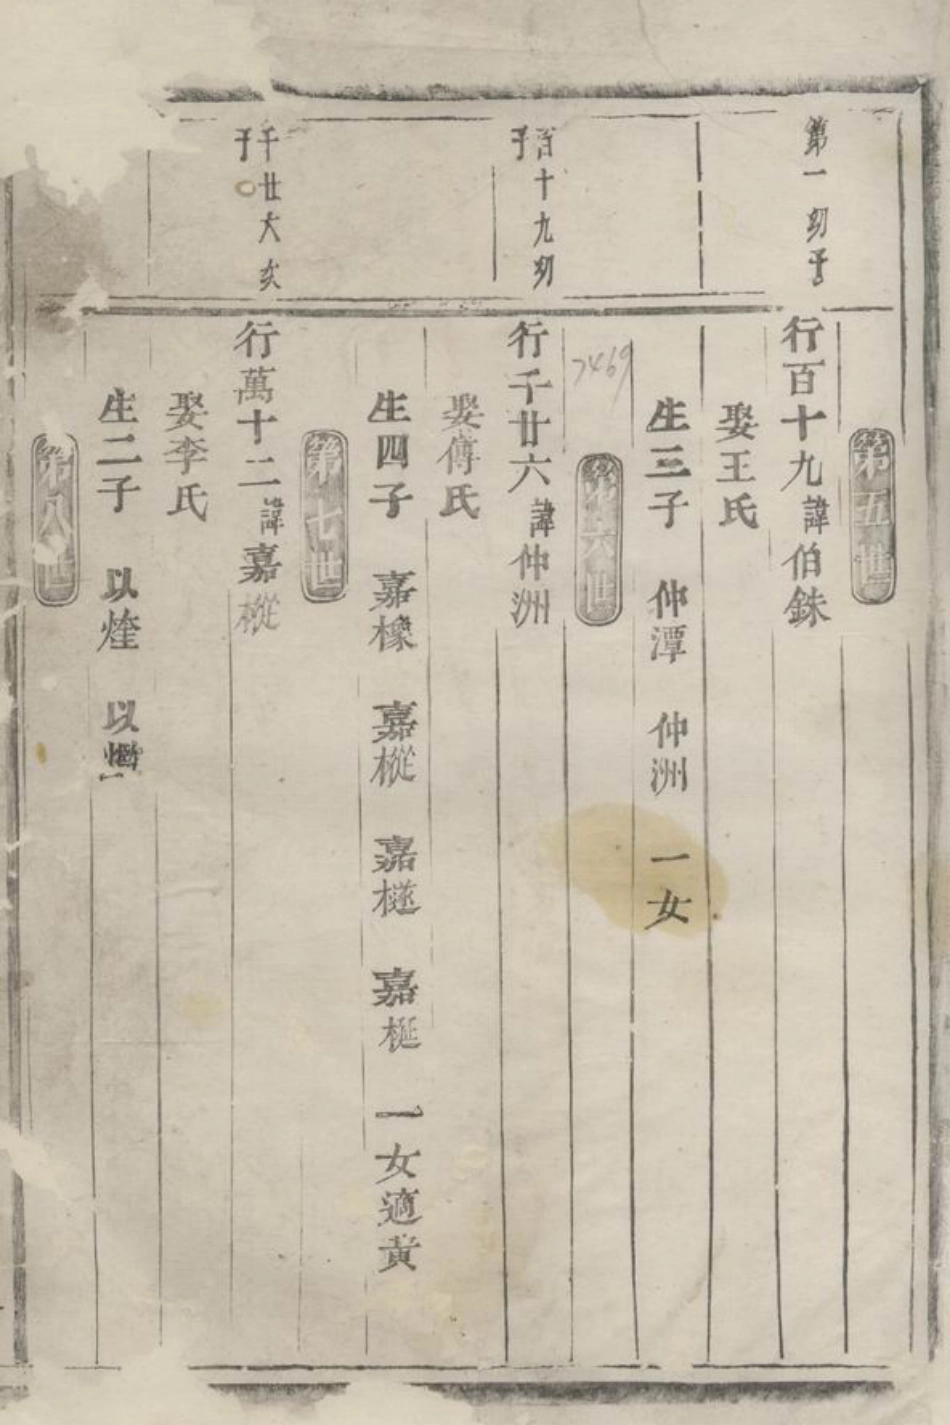 第五世
第一刻子
行百十九諱伯銖
娶王氏
生三子 仲潭 仲洲 一女
第六世
7469
百十九刻
子
行千廿六諱仲洲
娶傅氏
生四子 嘉橡 嘉樅 嘉樾 嘉梴 一女適黄
第七世
千廿六次
子
行萬十二諱嘉樅
娶李氏
生二子 以烇 以
第八世